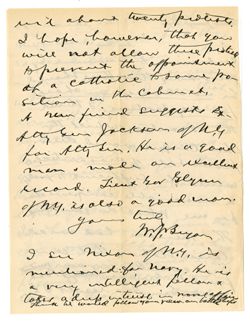 we'd about twenty protests.
I hope however, that you
will not allow these protests
to prevent the appointment
of a Catholic to some po-
sition in the Cabinet.
A near friend suggests Ex-
Atty Gen Jackson of N.Y.
for Atty Gen. He is a good
man & made an excellent
record. Lieut Gov Glynn
of N.Y. is also a good man.
Yours truly
W. J. Bryan
I see Nixon of N.Y. is
mentioned for Navy. He is
a very intelligent fellow &
takes a deep interest in naval affairs
think he would follow your views on